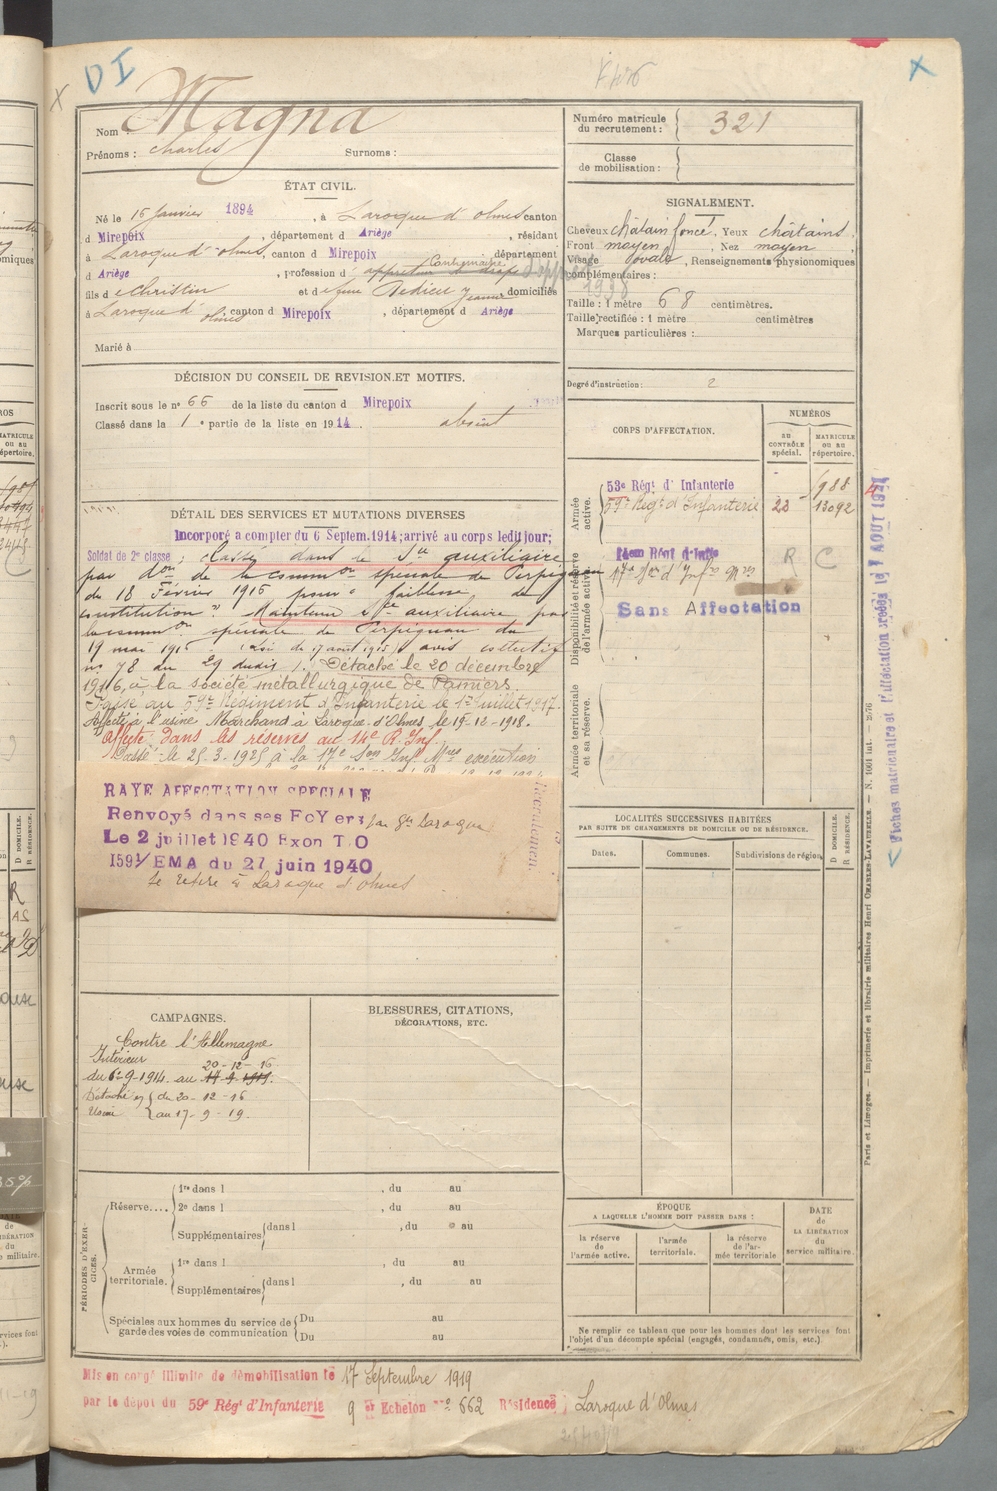 D I
Nom : Magna
Prénoms : Charles Surnoms :
Numéro matricule du recrutement : 321
Classe de mobilisation :
ÉTAT CIVIL.
Né le 15 Janvier 1894, à Laroque d'olmes canton
d Mirepoix, département d Ariège, résidant
à Laroque d'olmes, canton d Mirepoix département
d Ariège, profession d
fils d e Christin et d e feue Dedieu Jeanne domiciliés
à Laroque d'olmes canton d Mirepoix, département d Ariège
Marié à
SIGNALEMENT.
Cheveux châtain foncé, Yeux châtains
Front moyen, Nez moyen
Visage ovale, Renseignements physionomiques
complémentaires :
1938
Taille : 1 mètre 68 centimètres.
Taille rectifiée : 1 mètre centimètres
Marques particulières :
Degré d'instruction : 2
DÉCISION DU CONSEIL DE REVISION ET MOTIFS.
Inscrit sous le n° 66 de la liste du canton d Mirepoix
Classé dans la 1e partie de la liste en 1914. absent
CORPS D'AFFECTATION.
NUMÉROS
AU CONTRÔLE SPÉCIAL.
MATRICULE OU AU RÉPERTOIRE.
Armée active.
53e Régt d'Infanterie 1988
59e Regt d'Infanterie 23 13092
Disponibilité et réserve de l'armée active.
14em Régt d'Infie R C
17e Son d'Infie Mres
Sans Affectation
Armée territoriale et sa réserve.
DÉTAIL DES SERVICES ET MUTATIONS DIVERSES
Incorporé a compter du 6 Septem. 1914; arrivé au corps ledit jour;
Soldat de 2e classe : Classé dans le Sce auxiliaire
par don de la common spéciale de Perpignan
du 18 Février 1915 pour "faiblesse de
constitution". Maintenu Sce auxiliaire par
la common spéciale de Perpignan du
19 mai 1915.
no 78 du 29 dudit. Détaché le 20 décembre
1916, à la société métallurgique de Pamiers.
Passé au 59e Régiment d'Infanterie le 1er juillet 1917.
Affecté à l'usine Marchand à Laroque d'Olmes, le 15-12-1918.
Affecté dans les réserves au 14e R. Inf.
Passé le 25.3.1925 à la 17e Son Inf. Mres exécution
RAYE AFFECTATION SPECIALE
Renvoyé dans ses FoYers par Laroque
Le 2 juillet 1940 Exon T.O
1591/EMA du 27 juin 1940
Se retire à Laroque d'Olmes
LOCALITÉS SUCCESSIVES HABITÉES
PAR SUITE DE CHANGEMENTS DE DOMICILE OU DE RÉSIDENCE.
Dates. Communes. Subdivisions de région
D DOMICILE.
R RÉSIDENCE.
CAMPAGNES.
Contre l'Allemagne
Intérieur 20-12-16
du 6-9-1914. au 17 9 1919.
Détaché en { du 20-12-16
Usine { au 17-9-19.
BLESSURES, CITATIONS,
DÉCORATIONS, ETC.
PÉRIODES D'EXERCICES.
Réserve....
1re dans l , du au
2e dans l , du au
Supplémentaires dans l , du au
Armée territoriale.
1re dans l , du au
Supplémentaires dans l , du au
Spéciales aux hommes du service de garde des voies de communication
Du au
Du au
ÉPOQUE
A LAQUELLE L'HOMME DOIT PASSER DANS :
la réserve de l'armée active.
l'armée territoriale.
la réserve de l'armée territoriale
DATE de LA LIBÉRATION du service militaire.
Ne remplir ce tableau que pour les hommes dont les services font
l'objet d'un décompte spécial (engagés, condamnés, omis, etc.)
Mis en congé illimité de démobilisation le 17 Septembre 1919
par le dépôt du 59e Régt d'Infanterie 9 er Echelon no 662 Résidence Laroque d'Olmes
Paris et Limoges. — Imprimerie et librairie militaires Henri CHARLES-LAVAUZELLE. — N. 1601 int.
Fiches matriculaire et d'affectation créées le 7 AOUT 192